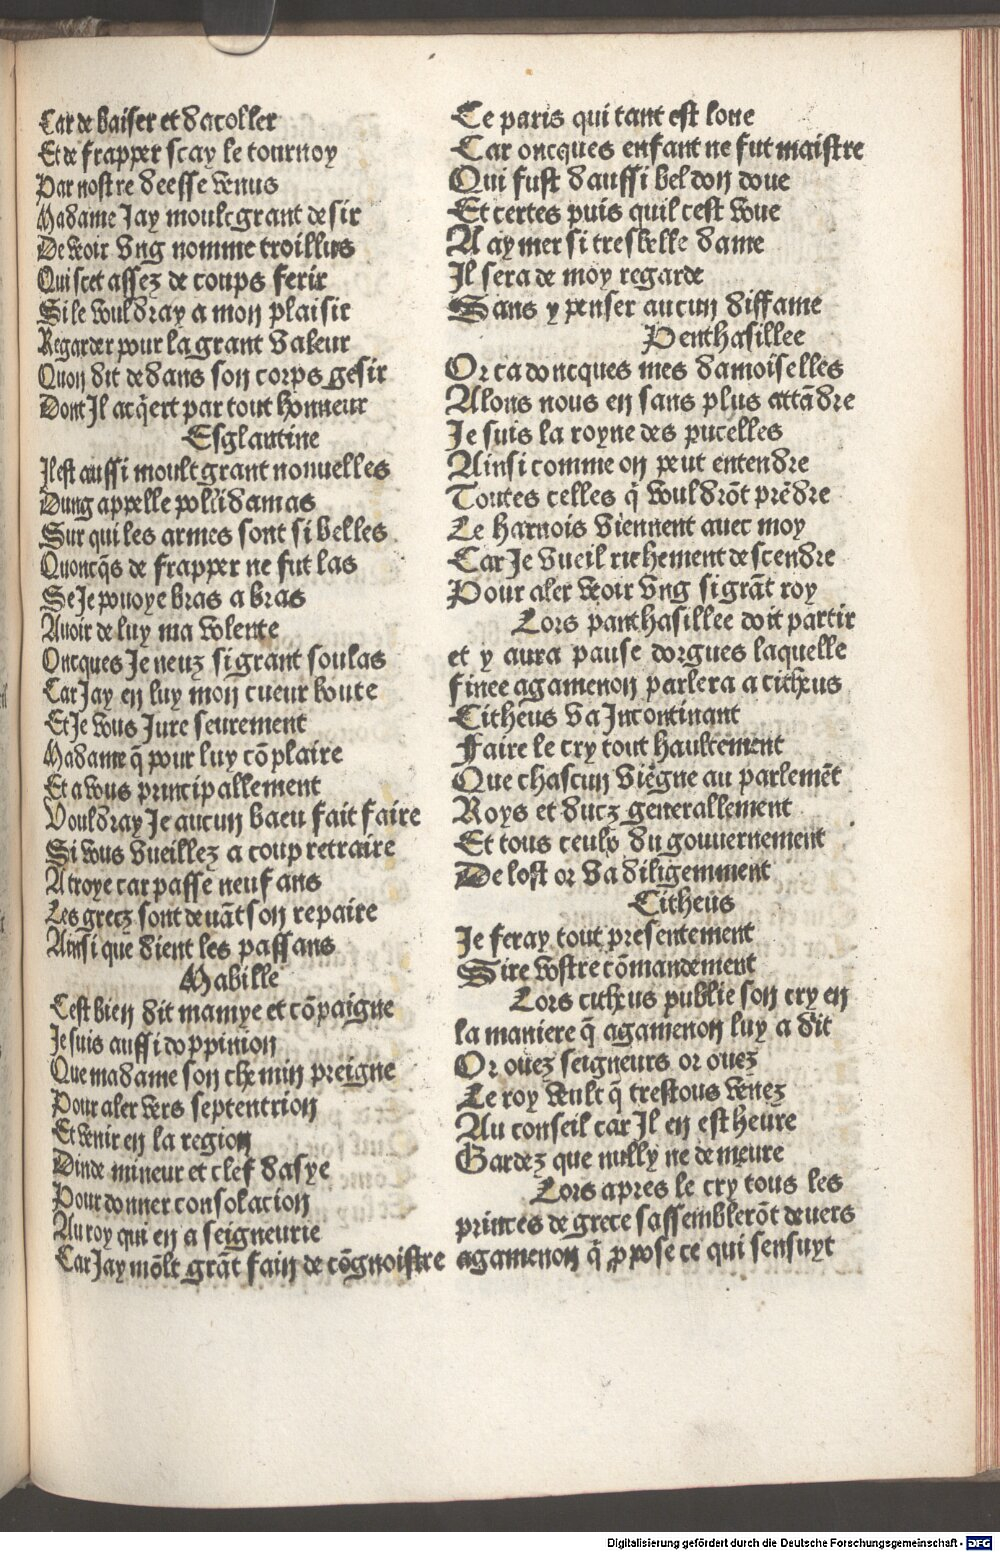 Car de baiser et dacoller
Et de frapper scay le tournoy
Par nostre deesse venus
Madame Jay moult grant desir
De veoir vng nomme troillus
Qui scet assez de coups ferir
Si le vouldray a mon plaisir
Regarder pour la grant valeur
Quon dit dedans son corps gesir
Dont Jl acq̃ert par tout honneur
Esglantine
Jl est aussi moult grant nouuelles
Dung appelle polidamas
Sur qui les armes sont si belles
Quoncq̃s de frapper ne fut las
Se Je pouoye bras a bras
Auoir de luy ma volente
Oncques Je neuz si grant soulas
Car Jay en luy mon cueur boute
Et Je vous Jure seurement
Madame q̃ pour luy cõplaire
Et a vous principallement
Vouldray Je aucun baeu fait faire
Si vous vueillez a coup retraire
A troye car passe neuf ans
Les grecz sont deuãt son repaire
Ainsi que dient les passans
Mabille
Cest bien dit mamye et cõpaigne
Je suis aussi doppinion
Que madame son chemin preigne
Pour aler vers septentrion
Et venir en la region
Dinde mineur et clef dasye
Pour donner consolacion
Au roy qui en a seigneurie
Car Jay mõlt grãt fain de cõgnoistre
Ce paris qui tant est loue
Car oncques enfant ne fut maistre
Qui fust daussi bel don doue
Et certes puis quil cest voue
A aymer si tresbelle dame
Jl sera de moy regarde
Sans y penser aucun diffame
Penthasillee
Or ca doncques mes damoiselles
Alons nous en sans plus attãdre
Je suis la royne des pucelles
Ainsi comme on peut entendre
Toutes celles q̃ vouldrõt prẽdre
Le harnois viennent auec moy
Car Je vueil richement descendre
Pour aler veoir vng si grãt roy
Lors panthasillee doit partir
et y aura pause dorgues laquelle
finee agamenon parlera a citheus
Citheus va Jncontinant
Faire le cry tout haultement
Que chascun viẽgne au parlemẽt
Roys et ducz generallement
Et tous ceulx du gouuernement
De lost or va diligemment
Citheus
Je feray tout presentement
Sire vostre cõmandement
Lors citheus publie son cry en
la maniere q̃ agamenon luy a dit
Or ouez seigneurs or ouez
Le roy veult q̃ trestous venez
Au conseil car Jl en est heure
Gardez que nully ne demeure
Lors apres le cry tous les
princes de grece sassemblerõt deuers
agamenon q̃ ꝓpose ce qui sensuyt
Digitalisierung gefördert durch die Deutsche Forschungsgemeinschaft - DFG